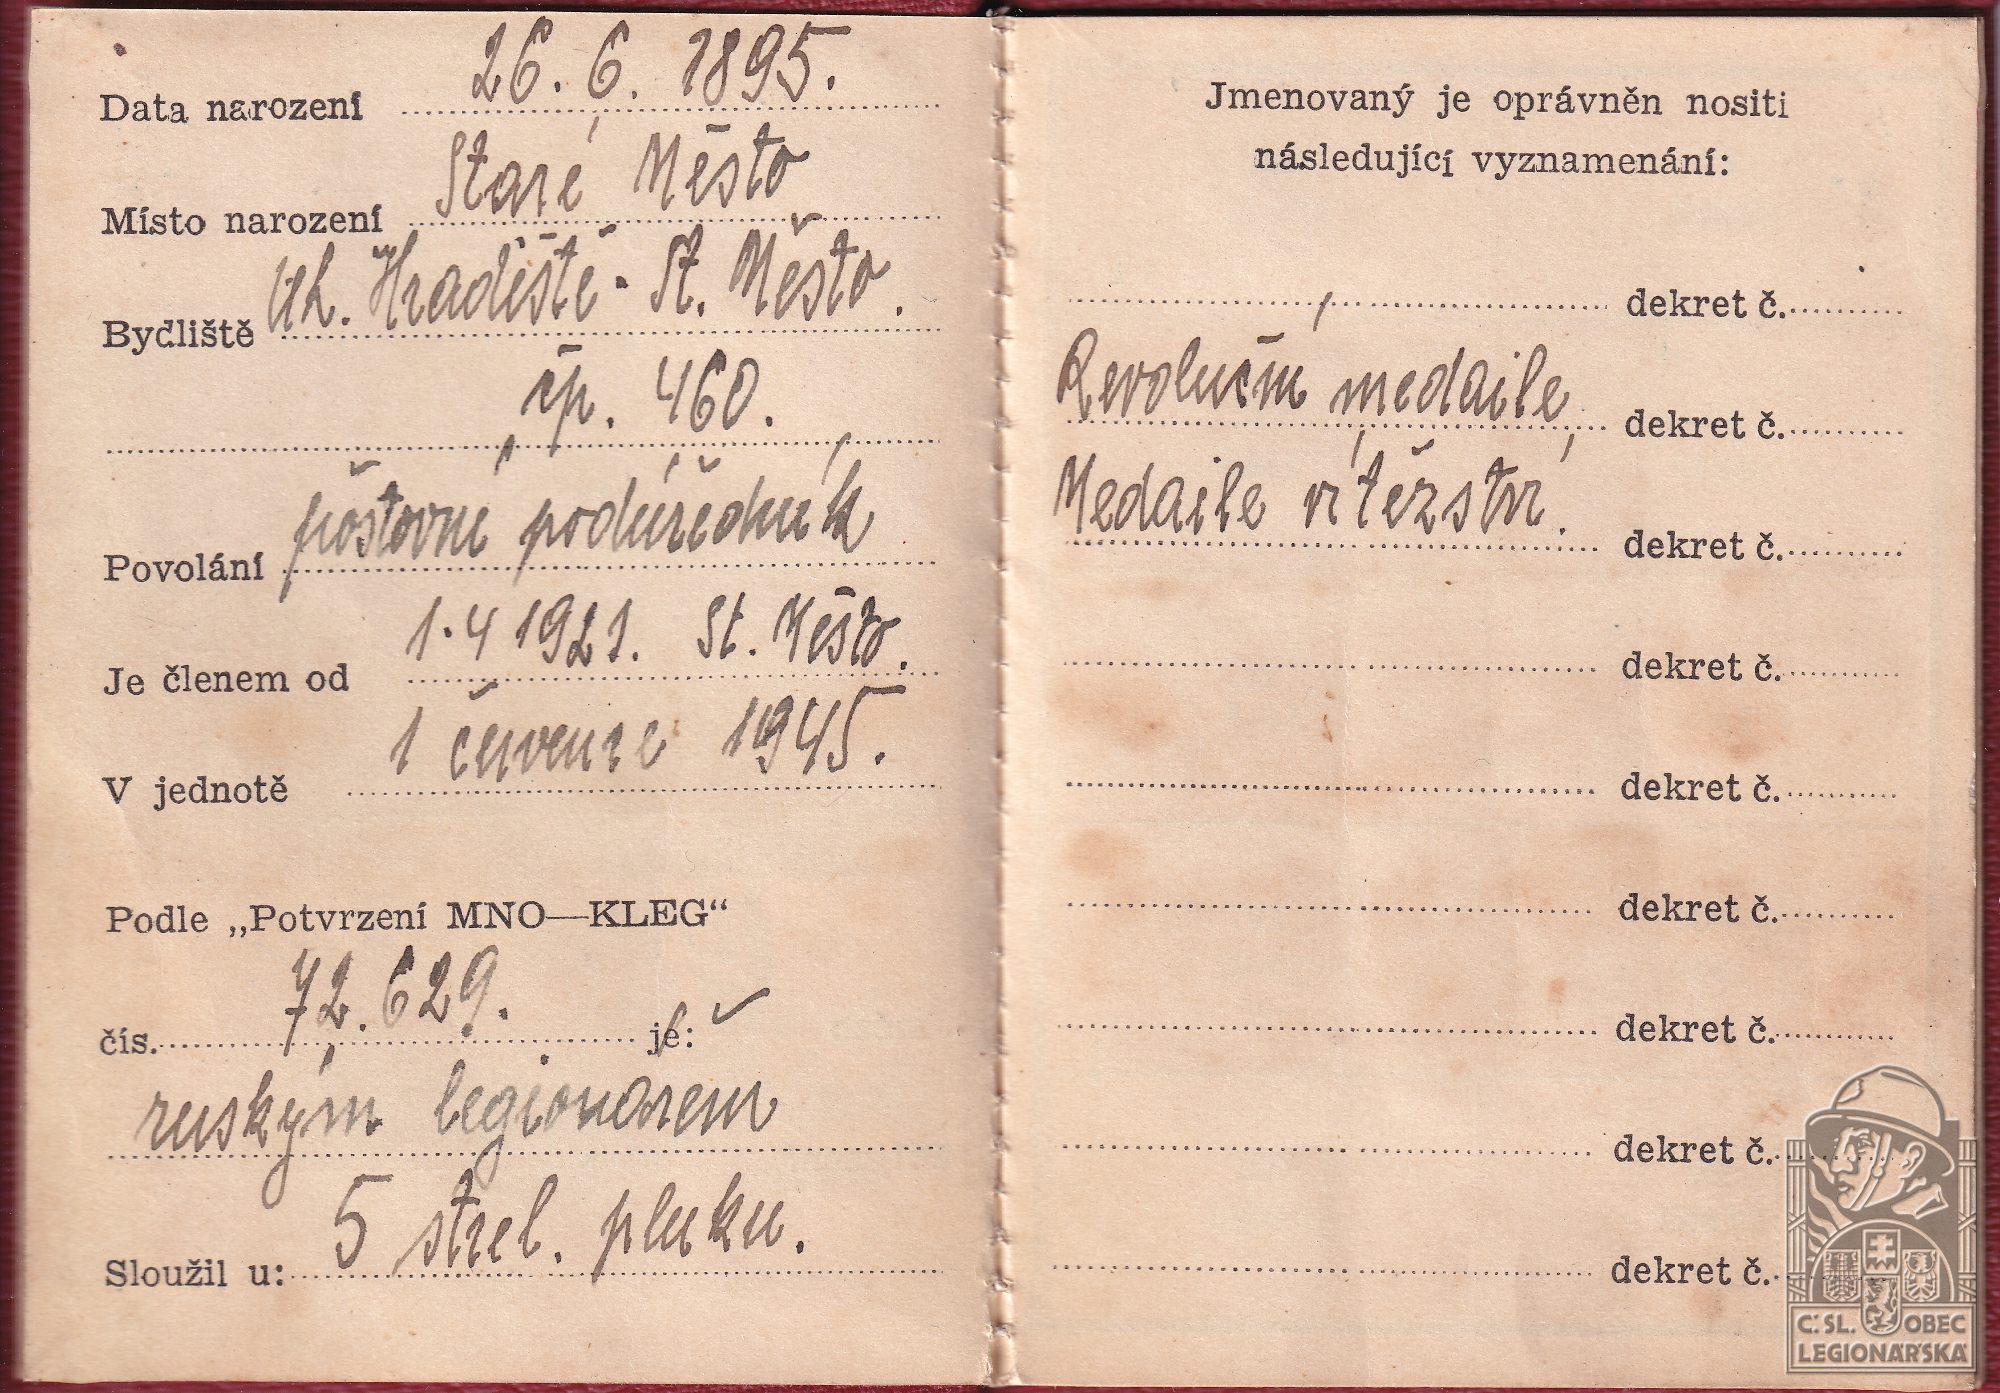 Data narození 26. 6. 1895.
Místo narození Staré Město
Bydliště Uh. Hradiště - St. Město.
čp. 460.
Povolání poštovní podúředník
Je členem od 1. 4 1921. St. Město.
V jednotě 1 července 1945.
Podle „Potvrzení MNO—KLEG“
čís. 72.629. je:
ruským legionářem
Sloužil u: 5 střel. pluku.
Jmenovaný je oprávněn nositi
následující vyznamenání:
dekret č.
Revoluční medaile, dekret č.
Medaile vítězství. dekret č.
dekret č.
dekret č.
dekret č.
dekret č.
dekret č.
dekret č.
Č.SL. OBEC
LEGIONÁŘSKÁ